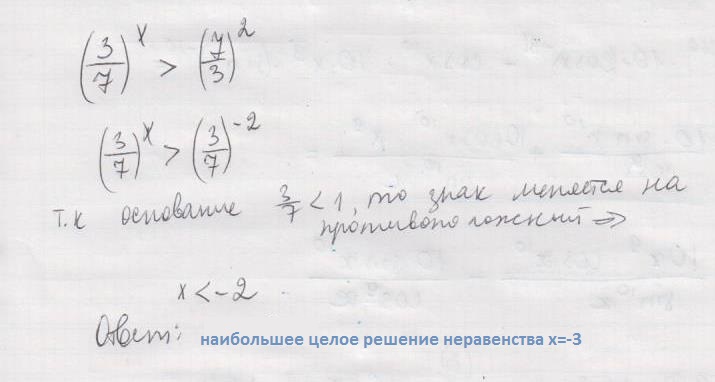 (3/7)^x > (7/3)^2
(3/7)^x > (3/7)^-2
т.к основание 3/7 < 1, то знак меняется на
противоположный =>
x < -2
Ответ: наибольшее целое решение неравенства x=-3